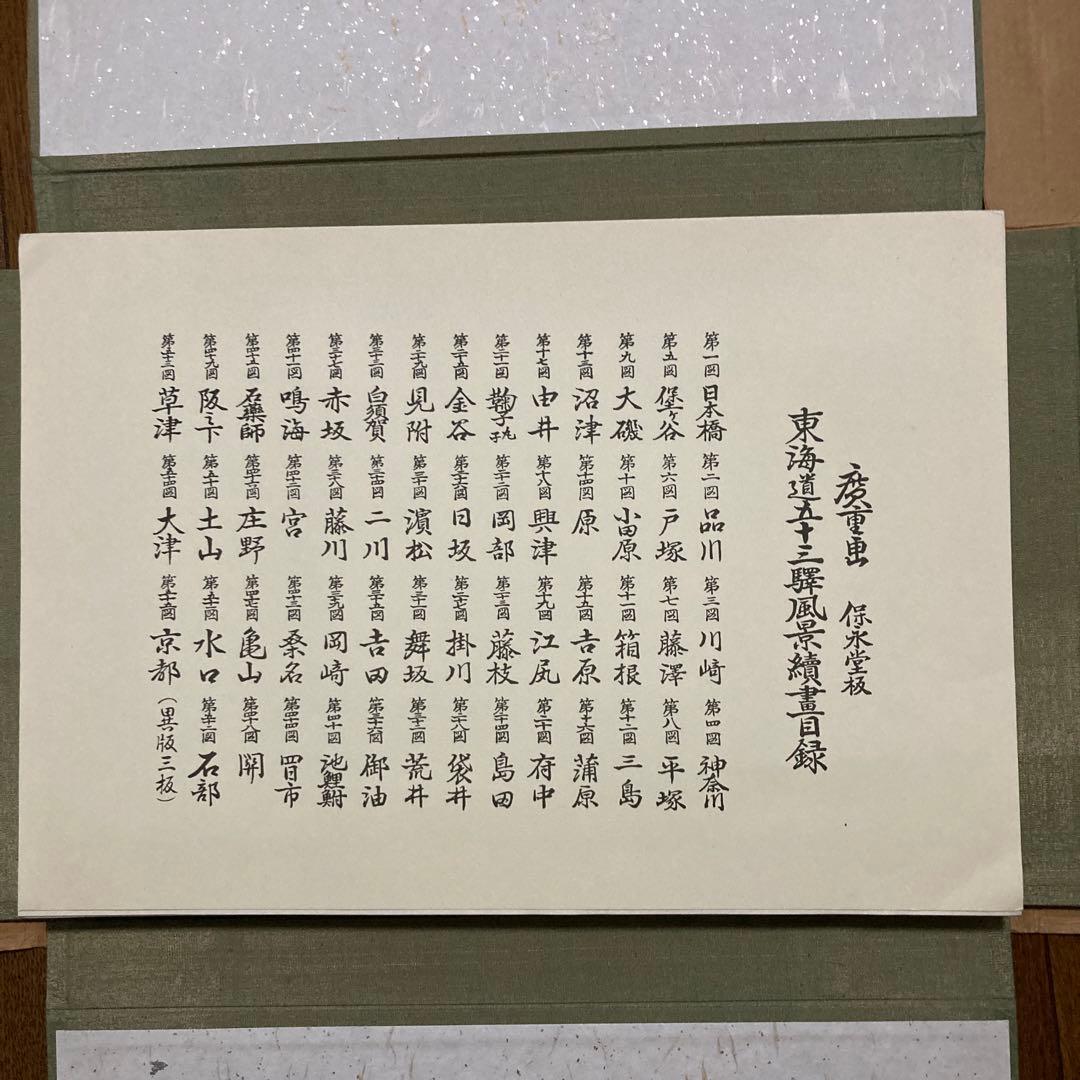 廣重画 保永堂板
東海道五十三驛風景續畫目録
第一図 日本橋 第二図 品川 第三図 川崎 第四図 神奈川
第五図 保土ヶ谷 第六図 戸塚 第七図 藤澤 第八図 平塚
第九図 大磯 第十図 小田原 第十一図 箱根 第十二図 三島
第十三図 沼津 第十四図 原 第十五図 吉原 第十六図 蒲原
第十七図 由井 第十八図 興津 第十九図 江尻 第二十図 府中
第二十一図 鞠子 丸子 第二十二図 岡部 第二十三図 藤枝 第二十四図 島田
第二十五図 金谷 第二十六図 日坂 第二十七図 掛川 第二十八図 袋井
第二十九図 見附 第三十図 濱松 第三十一図 舞坂 第三十二図 荒井
第三十三図 白須賀 第三十四図 二川 第三十五図 吉田 第三十六図 御油
第三十七図 赤坂 第三十八図 藤川 第三十九図 岡崎 第四十図 池鯉鮒
第四十一図 鳴海 第四十二図 宮 第四十三図 桑名 第四十四図 四日市
第四十五図 石薬師 第四十六図 庄野 第四十七図 亀山 第四十八図 関
第四十九図 阪下 第五十図 土山 第五十一図 水口 第五十二図 石部
第五十三図 草津 第五十四図 大津 第五十五図 京都 (異版三板)